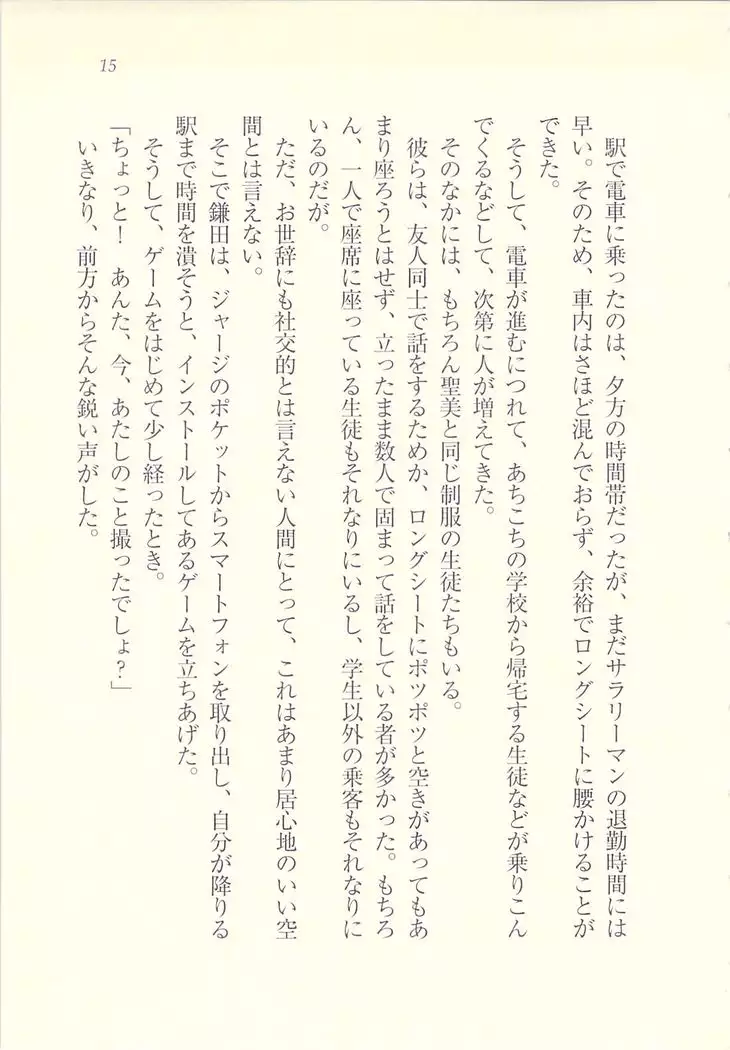 15
駅で電車に乗ったのは、夕方の時間帯だったが、まだサラリーマンの退勤時間には
早い。そのため、車内はさほど混んでおらず、余裕でロングシートに腰かけることが
できた。
そうして、電車が進むにつれて、あちこちの学校から帰宅する生徒などが乗りこん
でくるなどして、次第に人が増えてきた。
そのなかには、もちろん聖美と同じ制服の生徒たちもいる。
彼らは、友人同士で話をするためか、ロングシートにポツポツと空きがあってもあ
まり座ろうとはせず、立ったまま数人で固まって話をしている者が多かった。もちろ
ん、一人で座席に座っている生徒もそれなりにいるし、学生以外の乗客もそれなりに
いるのだが。
ただ、お世辞にも社交的とは言えない人間にとって、これはあまり居心地のいい空
間とは言えない。
そこで鎌田は、ジャージのポケットからスマートフォンを取り出し、自分が降りる
駅まで時間を潰そうと、インストールしてあるゲームを立ちあげた。
そうして、ゲームをはじめて少し経ったとき。
「ちょっと！　あんた、今、あたしのこと撮ったでしょ？」
いきなり、前方からそんな鋭い声がした。